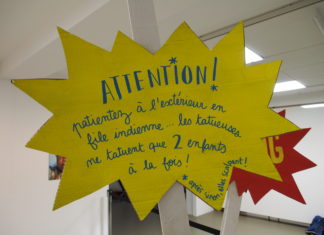 ATTENTION!
patientez à l'extérieur en
file indienne... les tatueuses
ne tatuent que 2 enfants
à la fois!
* après sinon elles